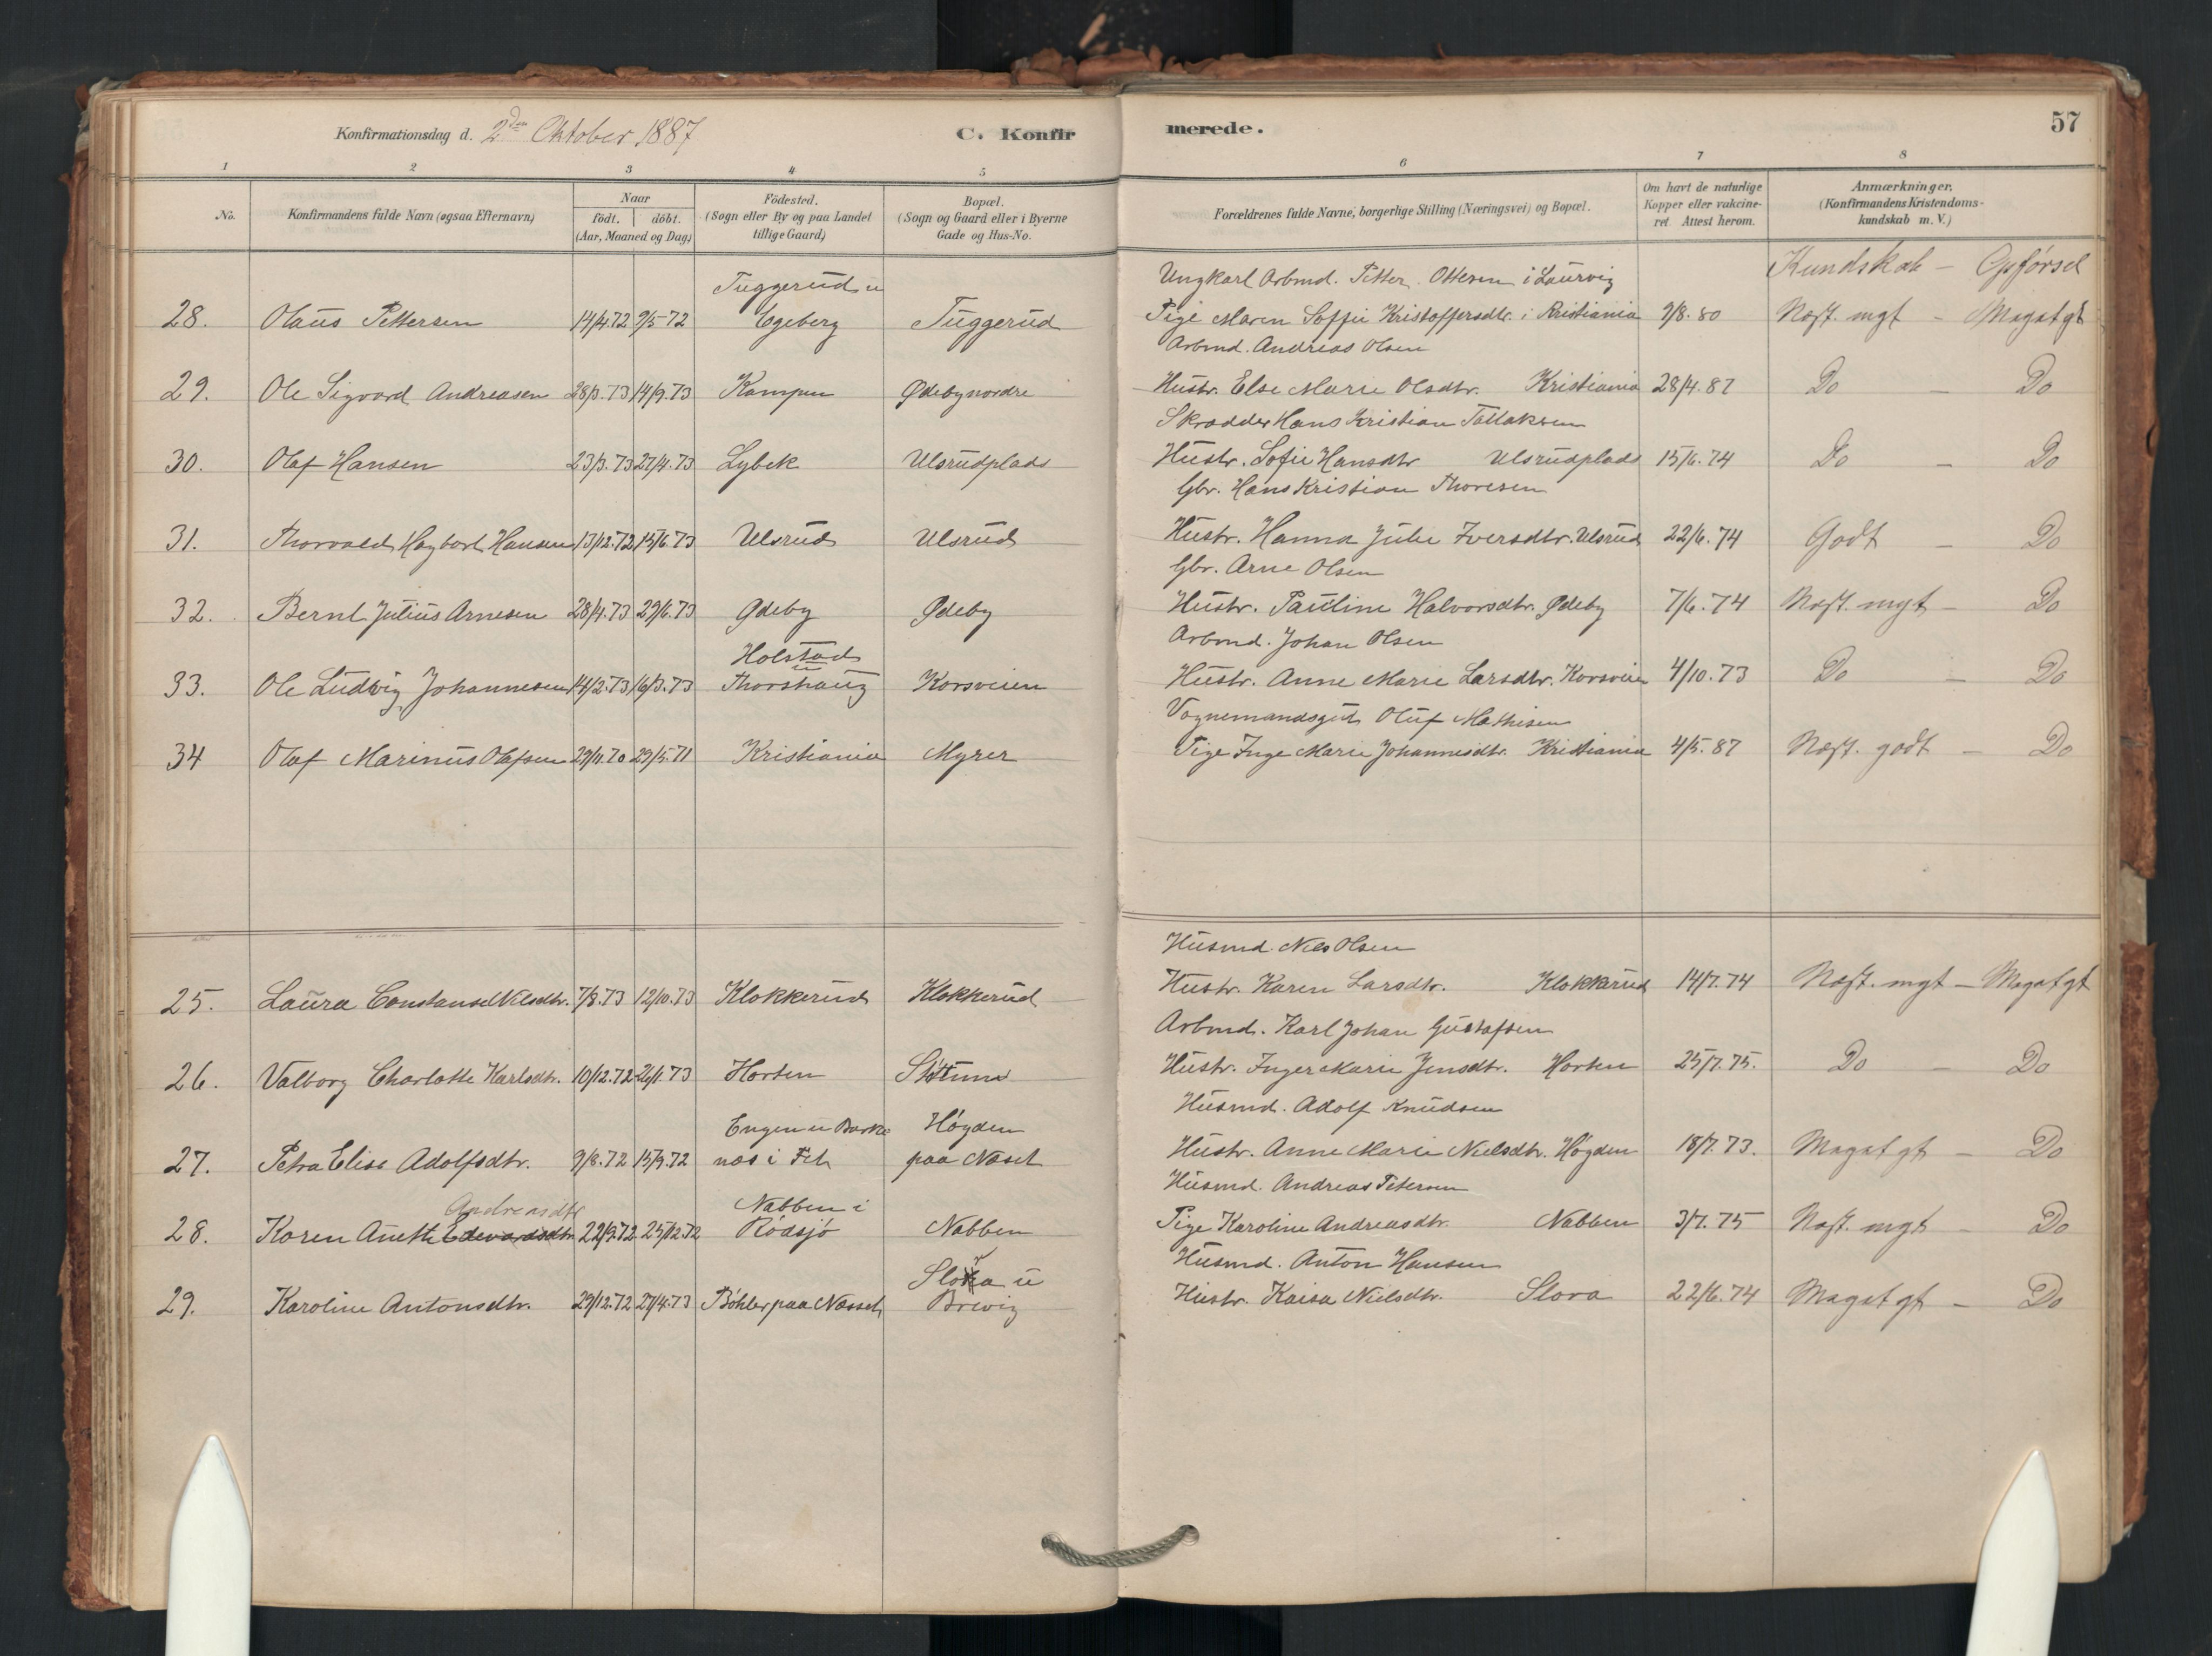 Konfirmationsdag d. 2den Oktober 1887
C. Konfirmerede.
57
1 2 3 4 5 6 7 8
No.
Konfirmandens fulde Navn (ogsaa Efternavn)
Naar
födt. döbt.
(Aar, Maaned og Dag)
Födested.
(Sogn eller By og paa Landet
tillige Gaard)
Bopæl.
(Sogn og Gaard eller i Byerne
Gade og Hus-No.
Forældrenes fulde Navne, borgerlige Stilling (Næringsvei) og Bopæl.
Om havt de naturlige
Kopper eller vakcine-
ret. Attest herom.
Anmærkninger.
(Konfirmandens Kristendoms-
kundskab m. V.)
Kundskab - Opförsel
Tuggerud u Ungkarl Arbmd. Petter Ottersen i Laurvig
28. Olaus Pettersen 14/4.72 9/5 72 Egeberg Tuggerud Pige Maren Soffie Kristoffersdtr. i Kristiania 9/8.80 Næst. mgt - Megat gt
Arbmd. Andreas Olsen
29. Ole Sigvard Andreasen 28/3.73 14/9.73 Kampen Ødebynordre Hustr. Else Marie Olsdtr. Kristiania 28/4.87 Do - Do
Skrædder Hans Kristian Tollaksen
30. Olaf Hansen 23/3.73 27/4.73 Lybek Ulsrudplads Hustr. Sofie Hansdtr Ulsrudplads 15/6.74 Do - Do
Gbr. Hans Kristian Thoresen
31. Thorvald Hagbart Hansen 13/12.72 15/6.73 Ulsrud Ulsrud Hustr. Hanna Julie Iversdtr. Ulsrud 22/6.74 Godt - Do
Gbr. Arne Olsen
32. Bernt Julius Arnesen 28/4.73 29/6.73 Ødeby Ødeby Hustr. Pauline Halvorsdtr. Ødeby 7/6.74 Næst. mgt - Do
Holstad u Arbmd. Johan Olsen
33. Ole Ludvig Johannesen 14/2.73 16/3.73 Thorshaug Korsveien Hustr. Anne Marie Larsdtr. Korsveien 4/10.73 Do - Do
Vognemandsgut Oluf Mathisen
34 Olaf Marinus Olafsen 29/11.70 29/5.71 Kristiania Myrer Pige Inge Marie Johannesdtr. Kristiania 4/5.87 Næst. godt - Do
Husmd. Niels Olsen
25. Laura Constanse Nilsdtr. 7/8.73 12/10.73 Klokkerud Klokkerud Hustr. Karen Larsdtr. Klokkerud 14/7.74 Næst. mgt - Megat gt
Arbmd. Karl Johan Gustafsen
26. Valborg Charlotte Karlsdtr. 10/12.72 26/1.73 Horten Støttum Hustr. Inger Marie Jensdtr. Horten 25/7.75. Do - Do
Engen u Barke Høgden Husmd. Adolf Knudsen
27. Petra Elise Adolfsdtr. 9/8.72 15/9.72 næs i Fet paa Næset Hustr. Anne Marie Nielsdtr. Høgden 18/7.73. Megat gt - Do
Andreasdtr Nabben i Husmd. Andreas Petersen
28. Karen Anette Edevardsdtr 22/9.72 25/12 72 Rødsjø Nabben Pige Karoline Andreasdtr. Nabben 3/7.75 Næst. mgt - Do
Slora u Husmd. Anton Hansen
29. Karoline Antonsdtr. 29/12.72 27/4.73 Bøhler paa Næsset Brevig Hustr. Kaisa Nielsdtr. Slora 22/6.74 Megat gt - Do